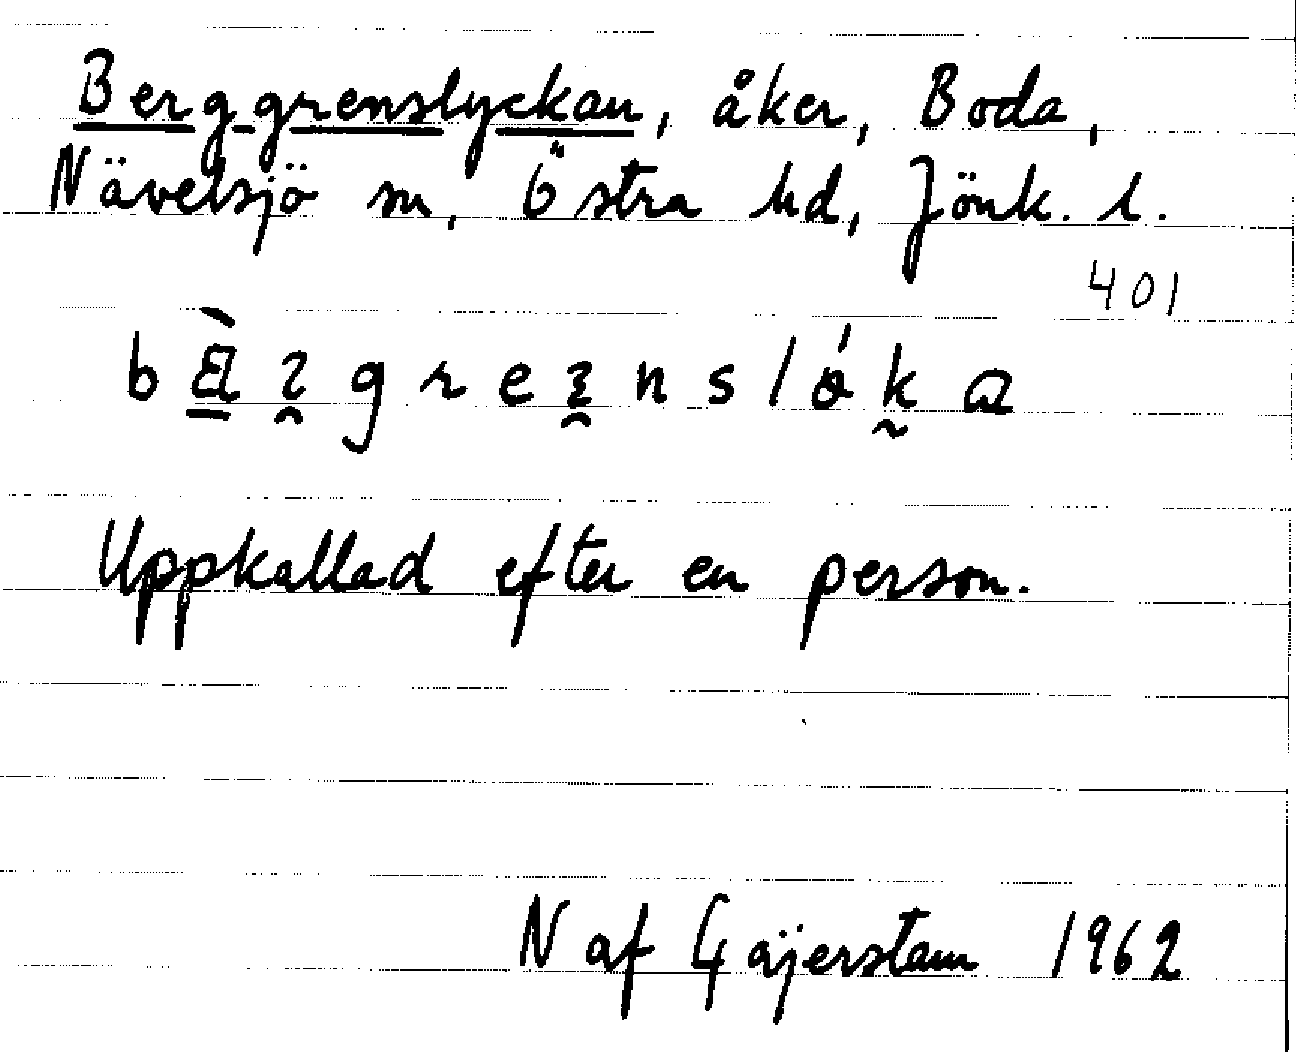 Berggrenslyckan, åker, Boda,
Nävelsjö sn, Östra hd, Jönk. l.
401
Uppkallad efter en person.
N af Gäijerstam 1962